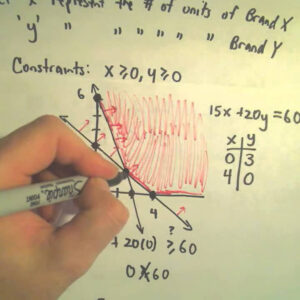 x represent the # of units of Brand X
'y' " " " " " " Brand Y
Constraints: x ≥ 0, y ≥ 0
6
15x + 20y = 60
x y
0 3
4 0
4
?
Sharpie
+ 20(0) ≥ 60
0 ≥ 60